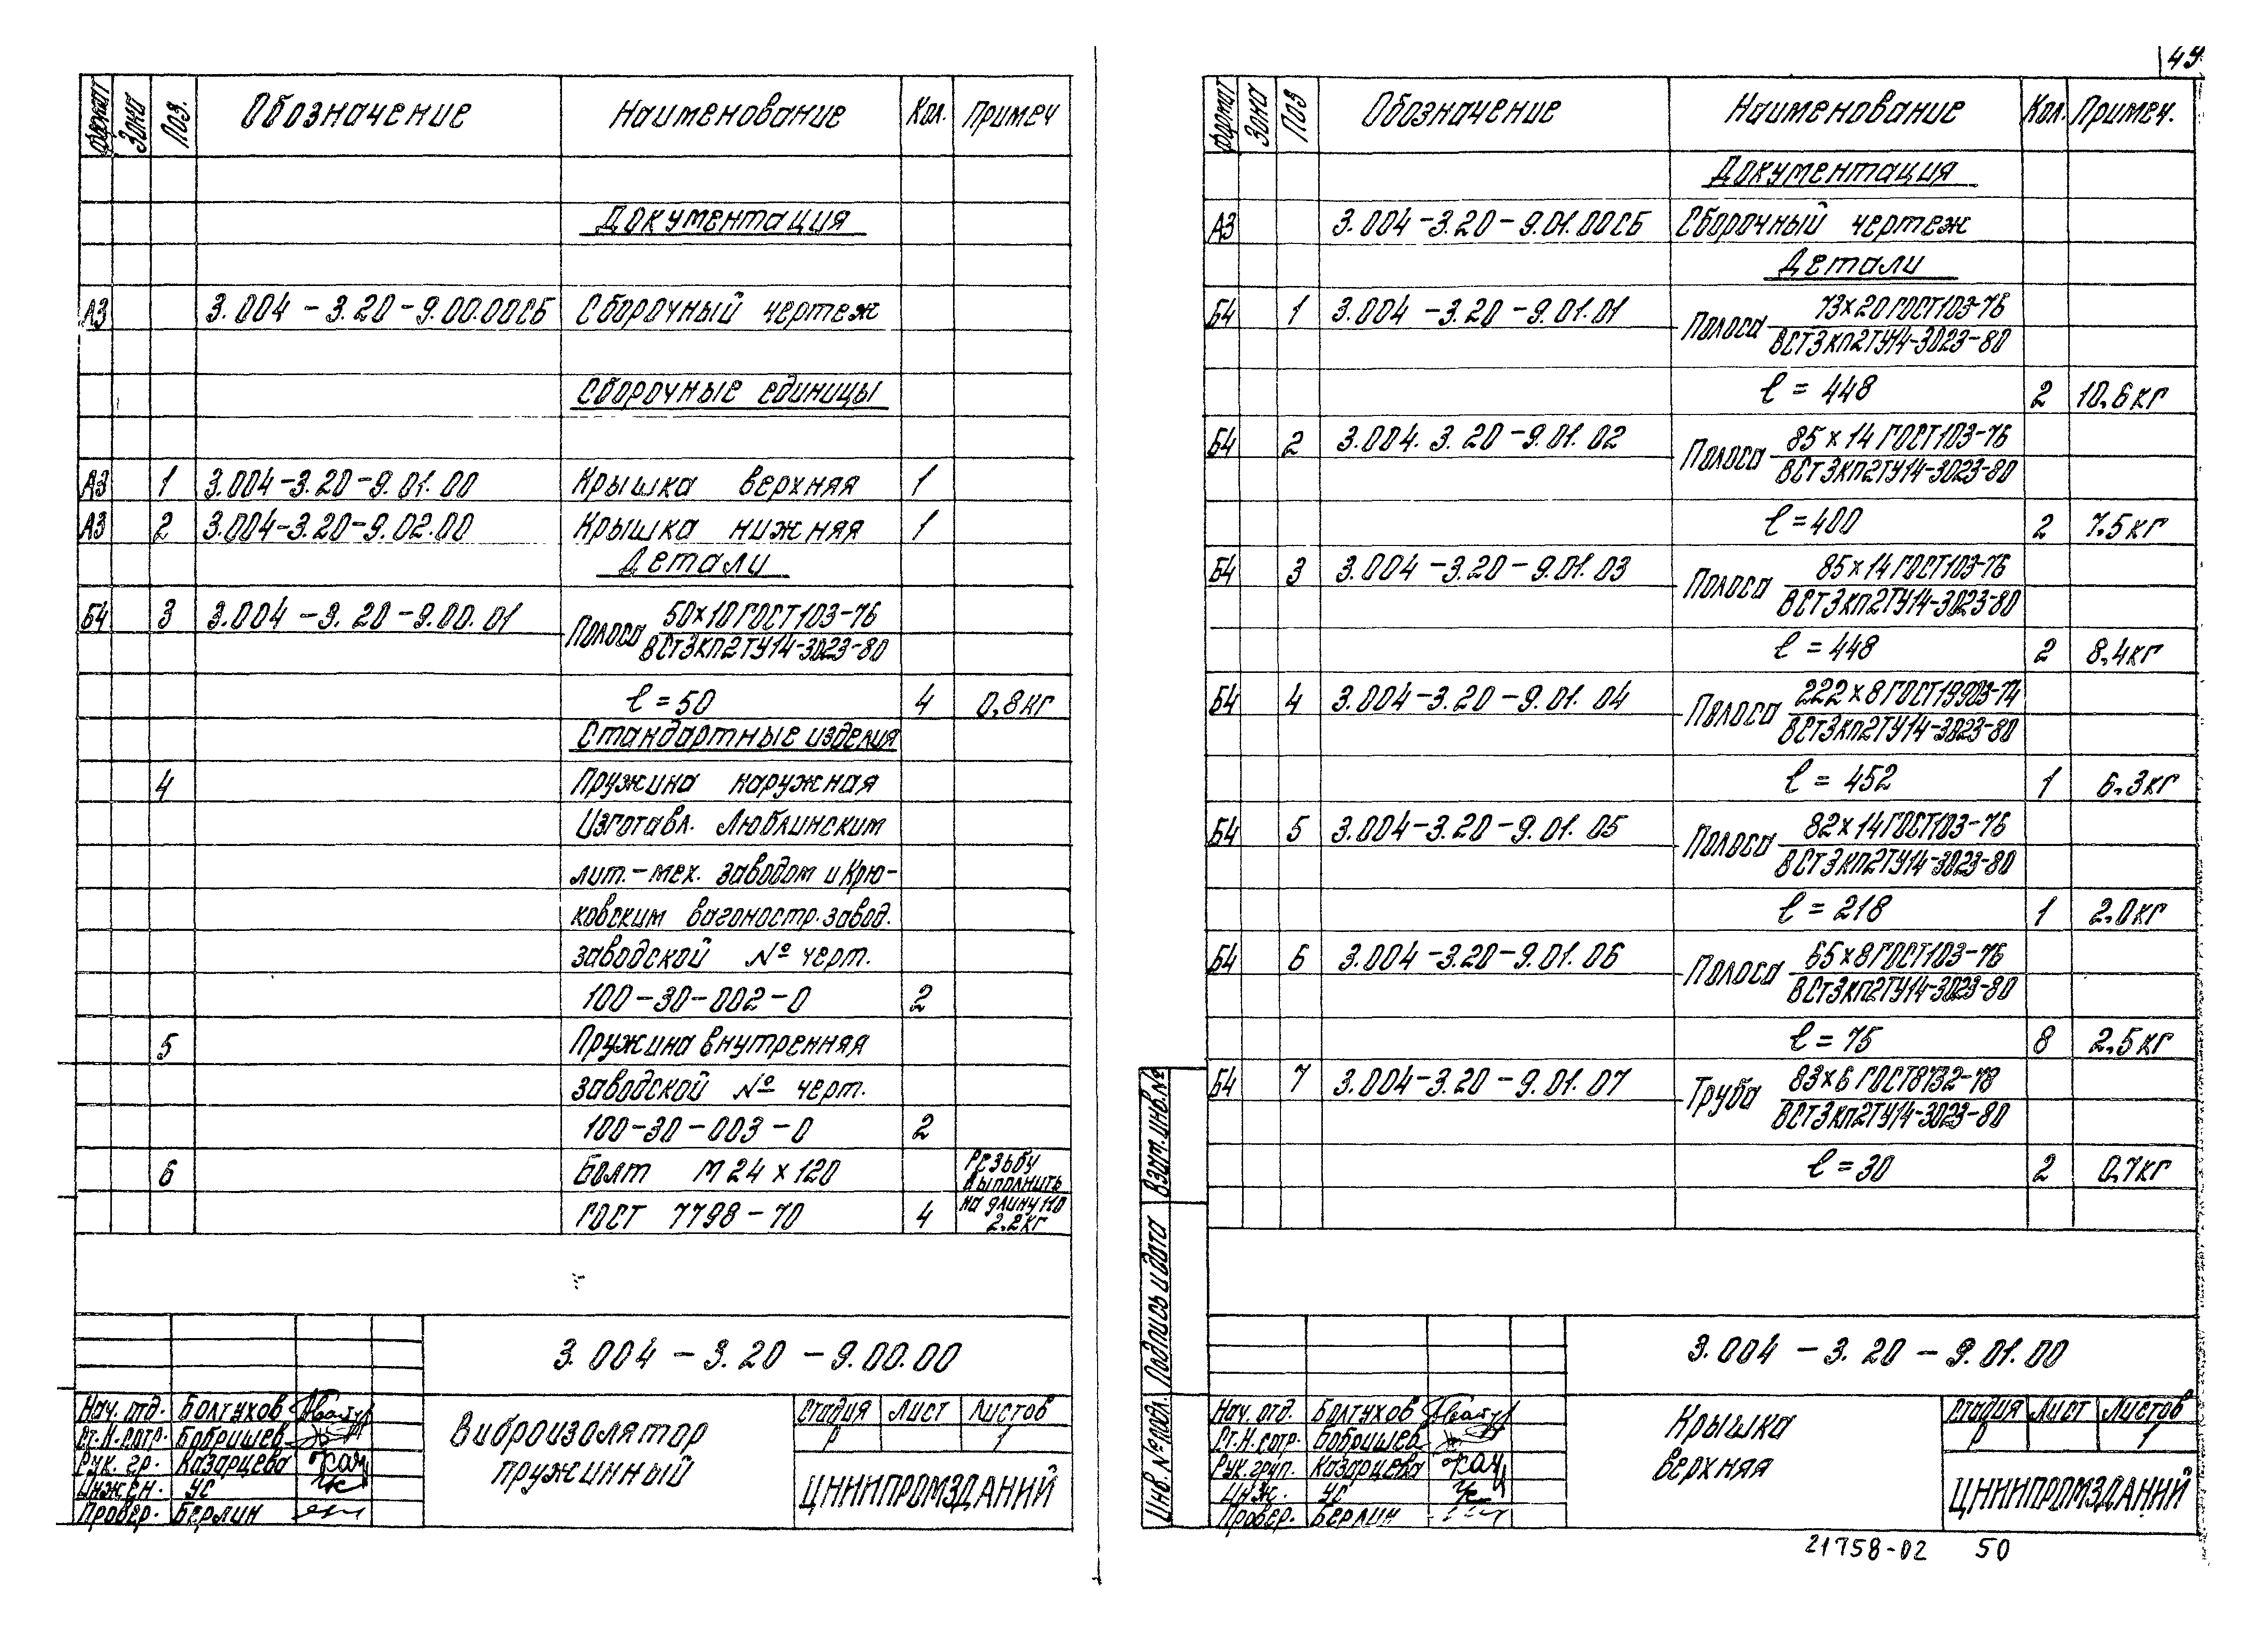 49
формат Зона Поз. Обозначение Наименование Кол. Примеч
Документация
А3 3.004 – 3.20 – 9.00.00СБ Сборочный чертеж
Сборочные единицы
А3 1 3.004–3.20–9.01.00 Крышка верхняя 1
А3 2 3.004–3.20–9.02.00 Крышка нижняя 1
Детали
Б4 3 3.004 – 3.20 – 9.00.01 Полоса 50×10 ГОСТ103–76
ВСт3кп2ТУ14–3023–80
ℓ = 50 4 0,8кг
Стандартные изделия
4 Пружина наружная
Изготавл. Люблинским
лит.–мех. заводом и Крю–
ковским вагоностр. завод.
заводской № черт.
100–30–002–0 2
5 Пружина внутренняя
заводской № черт.
100–30–003–0 2
6 Болт М24×120 Резьбу
выполнить
ГОСТ 7798–70 4 на длину 110
2.2кг
3.004 – 3.20 – 9.00.00
Нач. отд. Болтухов
Ст.н.сотр. Бобришев
Рук. гр. Казарцева
Инжен. Ус
Провер. Берлин
Виброизолятор
пружинный
Стадия Лист Листов
Р 1
ЦНИИПРОМЗДАНИЙ
формат Зона Поз Обозначение Наименование Кол. Примеч.
Документация
А3 3.004 –3.20 – 9.01.00СБ Сборочный чертеж
Детали
Б4 1 3.004 –3.20 –9.01.01 Полоса 73×20 ГОСТ103–76
ВСт3кп2ТУ14–3023–80
ℓ = 448 2 10.6кг
Б4 2 3.004. 3.20 –9.01.02 Полоса 85×14 ГОСТ103–76
ВСт3кп2ТУ14–3023–80
ℓ =400 2 7.5кг
Б4 3 3.004 –3.20 –9.01.03 Полоса 85×14 ГОСТ103–76
ВСт3кп2ТУ14–3023–80
ℓ =448 2 8,4кг
Б4 4 3.004–3.20 – 9.01.04 Полоса 222×8 ГОСТ19903–74
ВСт3кп2ТУ14–3023–80
ℓ = 452 1 6.3кг
Б4 5 3.004–3.20 –9.01.05 Полоса 82×14 ГОСТ103–76
ВСт3кп2ТУ14–3023–80
ℓ = 218 1 2.0кг
Б4 6 3.004 –3.20–9.01.06 Полоса 65×8 ГОСТ103–76
ВСт3кп2ТУ14–3023–80
ℓ = 75 8 2,5кг
Б4 7 3.004–3.20 – 9.01.07 Труба 83×6 ГОСТ8732–78
ВСт3кп2ТУ14–3023–80
ℓ =30 2 0,7кг
Взам. инв.№
Подпись и дата
Инв. №подл.
3.004 – 3.20 – 9.01.00
Нач. отд. Болтухов
Ст.н.сотр. Бобришев
Рук. груп. Казарцева
Инж. Ус
Провер. Берлин
Крышка
верхняя
Стадия Лист Листов
Р 1
ЦНИИПРОМЗДАНИЙ
21758-02 50